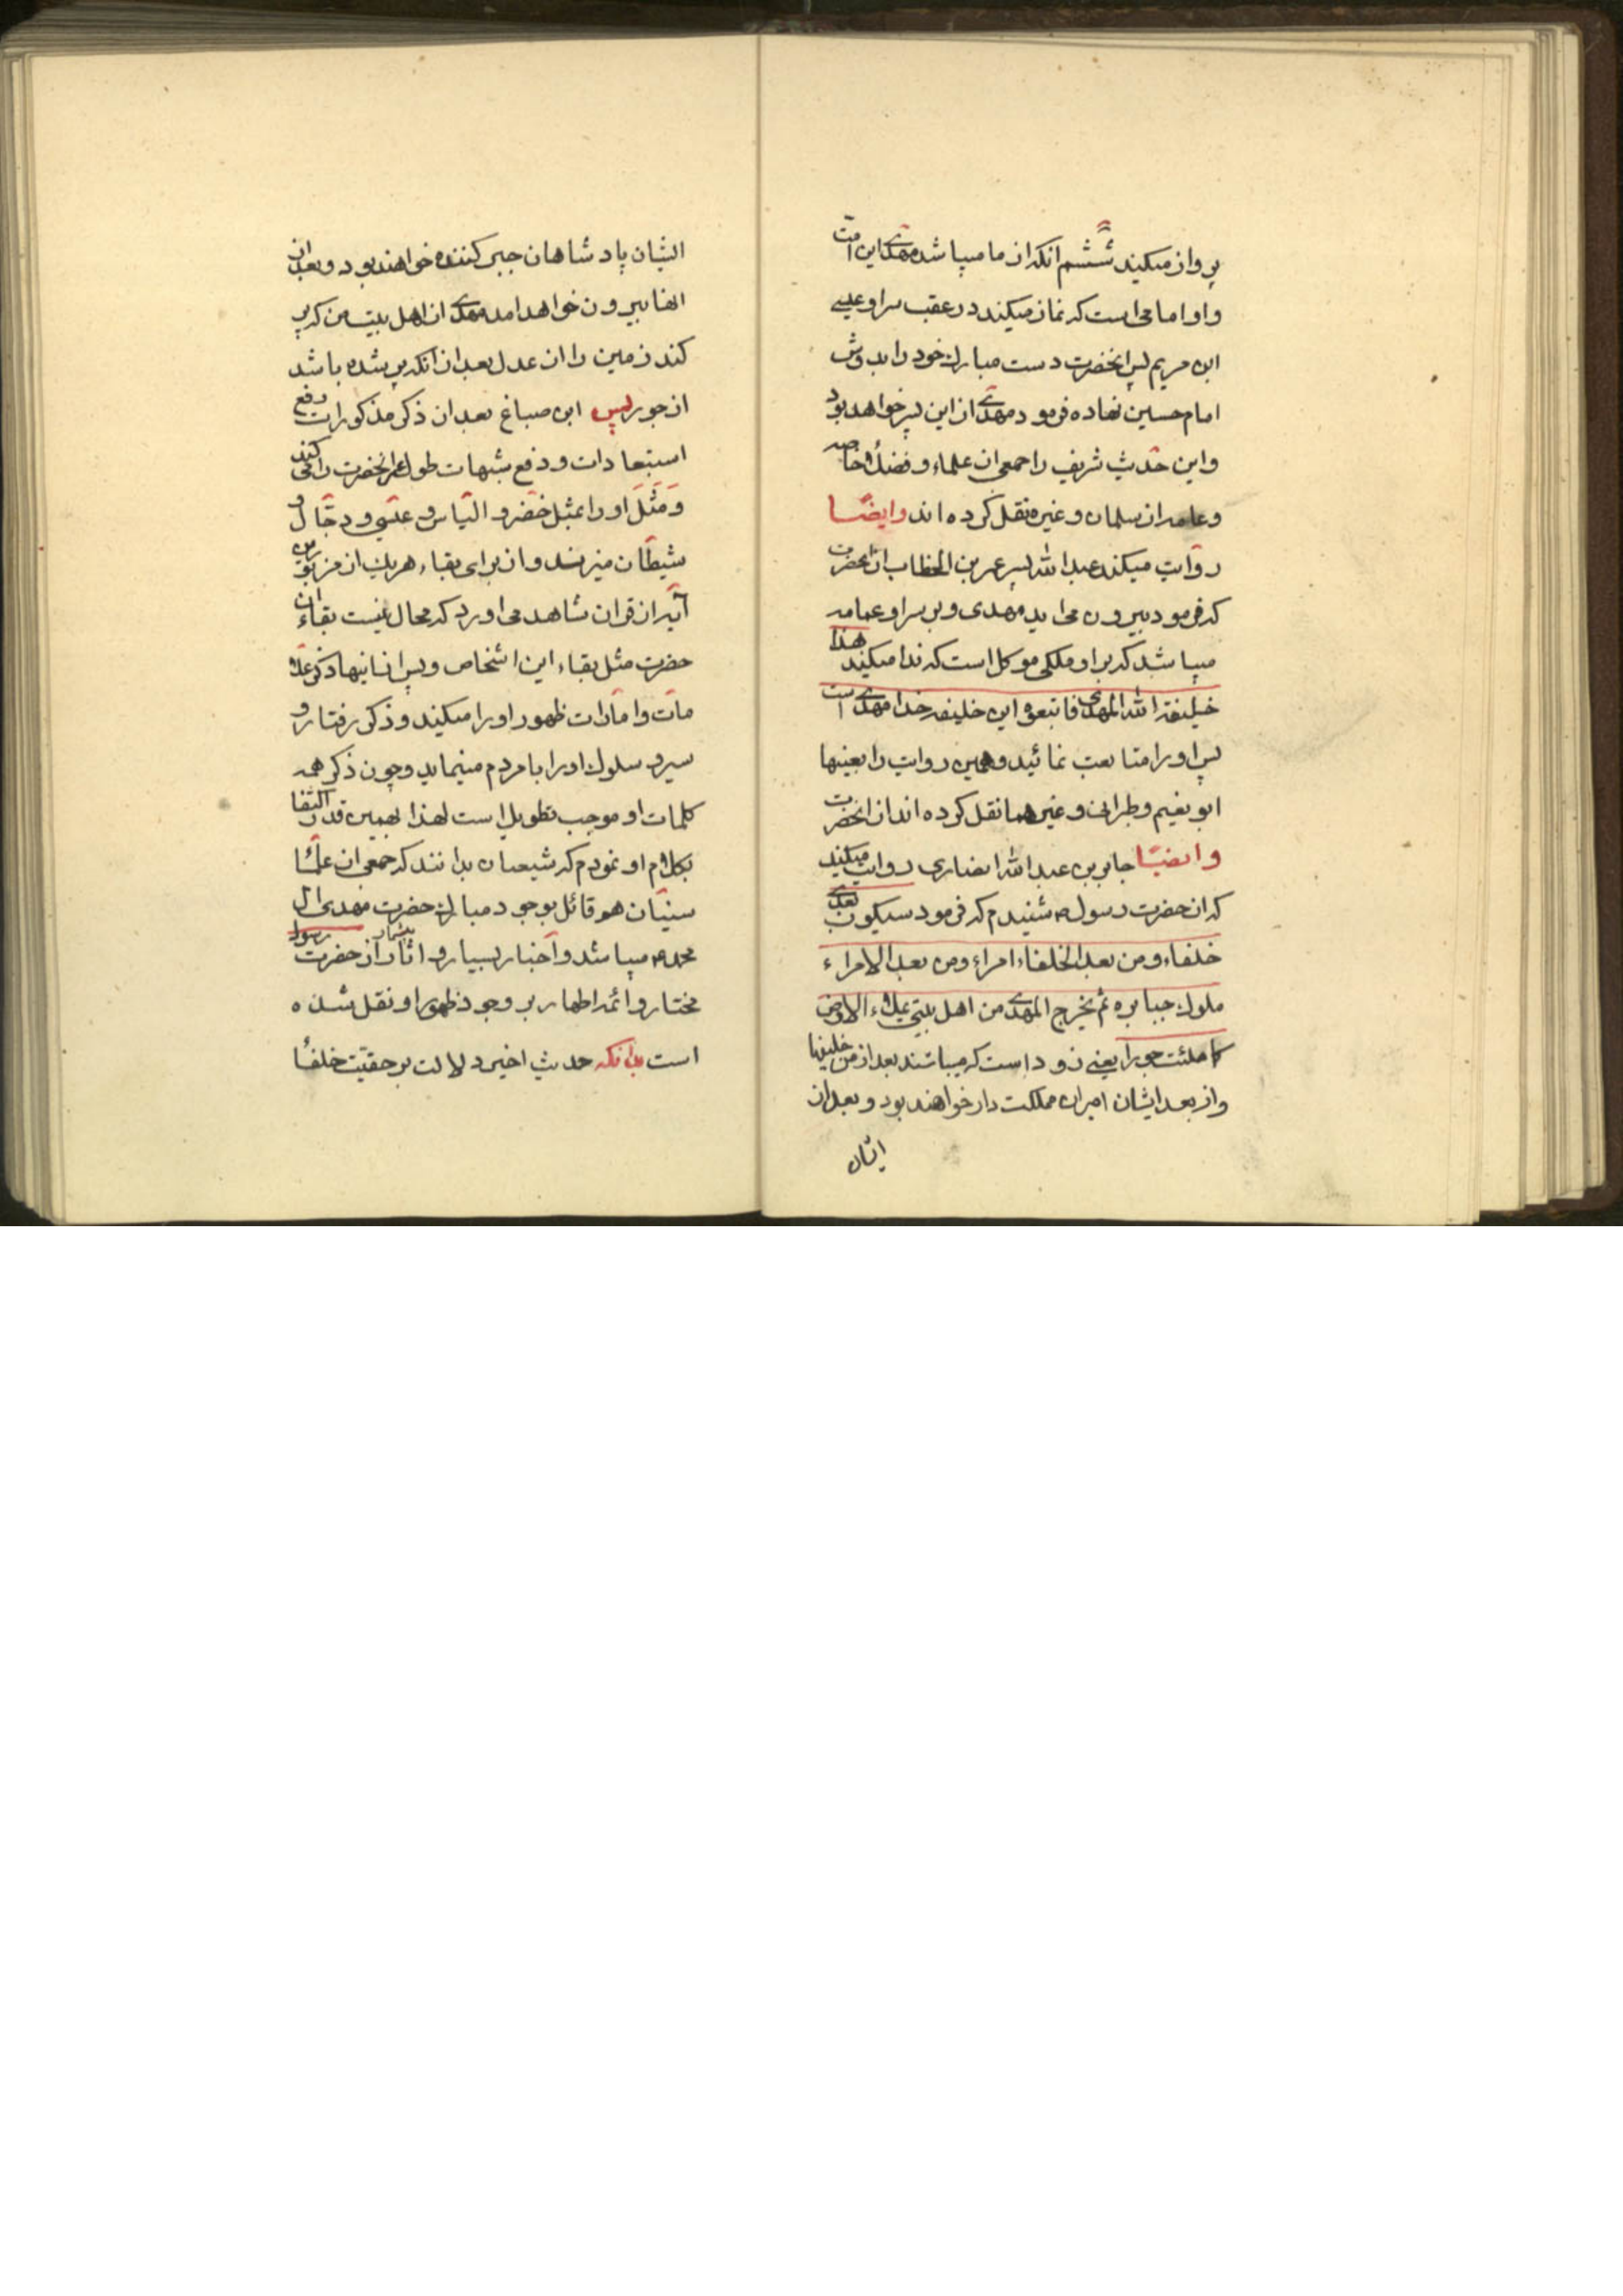 پرواز میکند ششم انکه از ما میباشد مهدی این امت
و او امامی است که نماز میکند در عقب سر او عیسی
ابن مریم پس انحضرت دست مبارک خود را بدوش
امام حسین نهاده فرمود مهدی از این پسر خواهد بود
و این حدیث شریف را جمعی از علماء و فضلاء خاصه
و عامه از سلمان و غیره نقل کرده اند وایضًا
روایت میکند عبد الله پسر عمر بن الخطاب از انحضرت
که فرمود بیرون می اید مهدی و بر سر او عمامه
میباشد که بر او ملکی موکل است که ندا میکند هذا
خلیفة الله المهدی فاتبعوه این خلیفه خدا مهدی است
پس او را متابعت نمائید و همین روایت را بعینها
ابو نعیم و طبرانی و غیر هما نقل کرده اند از انحضرت
وایضًا جابر بن عبد الله انصاری روایت میکند
که از حضرت رسول ص شنیدم که فرمود سیکون بعدی
خلفاء و من بعد الخلفاء امراء و من بعد الامراء
ملوک جبابره ثم یخرج المهدی من اهل بیتی یملاء الارض
کما ملئت جورا یعنی زود است که میباشند بعد از من خلیفها
و از بعد ایشان امیران مملکت دار خواهند بود و بعد از
ایشان
ایشان پادشاهان جبر کننده خواهند بود و بعد از
انها بیرون خواهد امد مهدی از اهل بیت من که پر
کند زمین را از عدل بعد از انکه پر شده باشد
از جور پس ابن صباغ بعد از ذکر مذکورات رفع
استبعادات و دفع شبهات طول عمر انحضرت را می کند
و مَثَل او را بمثل خضر و الیاس و عیسی و دجّال و
شیطان میزند و از برای بقاء هر یک از مزبورین
آیه از قران شاهد می اورد که محال نیست بقاء ان
حضرت مثل بقاء این اشخاص و پس از اینها ذکر علا
مات و امارات ظهور او را میکند و ذکر رفتار و
سیر و سلوک او را با مردم مینماید و چون ذکر همه
کلمات او موجب تطویل است لهذا بهمین قدر اکتفا
بکلام او نمودم که شیعیان بدانند که جمعی از علماء
سنیّان هم قائل بوجود مبارک حضرت مهدی ال
محمد ص میباشد و اخبار بسیار و اثار بیشمار از حضرت رسول
مختار و ائمه اطهار بر وجود ظهور او نقل شده
است بدانکه حدیث اخیر دلالت بر حقیّت خلفاء